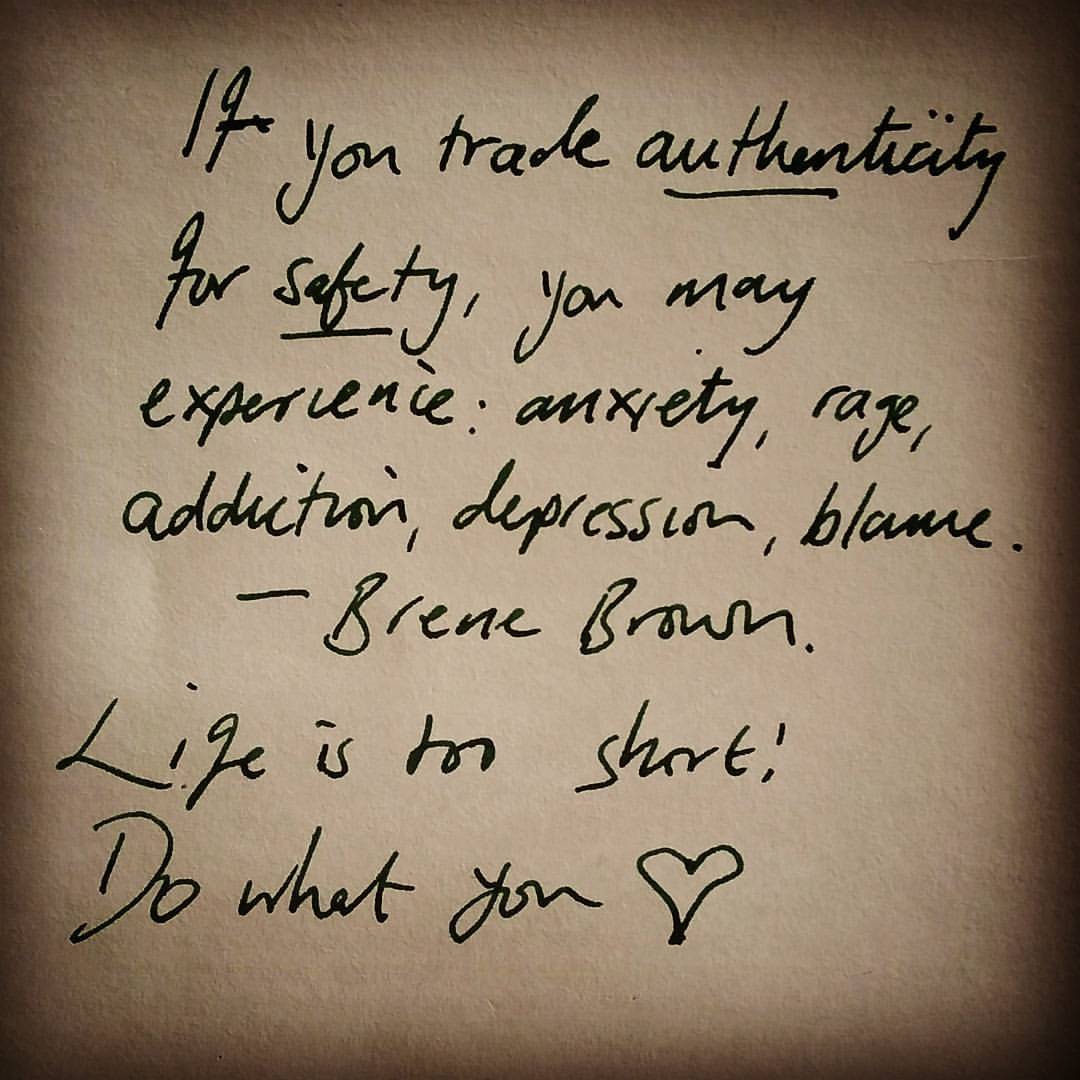 If you trade authenticity
for safety, you may
experience: anxiety, rage,
addiction, depression, blame.
- Brene Brown.
Life is too short!
Do what you ♡